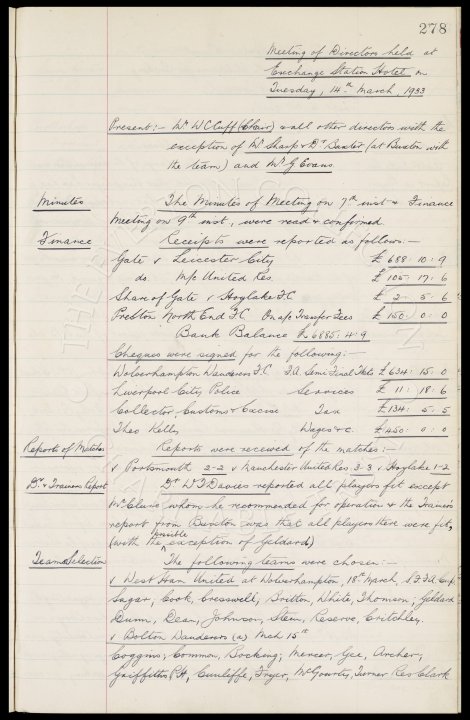 278
Meeting of Directors held at
Exchange Station Hotel on
Tuesday, 14th March, 1933
Present:- Mr W C Cuff (Chair) & all other directors with the
exception of Mr Sharp & Dr Baxter (at Buxton with
the team) and Mr G Evans
Minutes The Minutes of Meeting on 7th inst & Finance
Meeting on 9th inst, were read & confirmed
Finance Receipts were reported as follows:-
Gate v Leicester City £688: 10: 9
do. M/c United Res. £105: 17: 6
Share of Gate v Hoylake F.C £2: 5: 6
Preston North End F.C On a/c Transfer Fees £150: 0: 0
Bank Balance £6885: 4: 9
Cheques were signed for the following:-
Wolverhampton Wanderers F.C F.A. Semi Final Tkts £634: 15: 0
Liverpool City Police Services £11: 18: 6
Collector, Customs & Excise Tax £134: 5: 5
Theo Kelly Wages &c. £450: 0: 0
Reports of Matches Reports were received of the matches:-
v Portsmouth 2-2 v Manchester United Res 3-3 v Hoylake 1-2
Dr. & Trainers Report Dr W T Davies reported all players fit except
Mr Clure whom he recommended for operation & the Trainer's
report from Buxton was that all players there were fit,
(with the possible exception of Geldard)
Team Selection The following teams were chosen:-
v West Ham United at Wolverhampton, 18th March, S.F.F.A. Cup.
Sagar, Cook, Cresswell, Britton, White, Thomson, Geldard
Dunn, Dean, Johnson, Stein, Reserve, Critchley.
v Bolton Wanderers (a) Mch 15th
Coggins, Common, Bocking, Mercer, Gee, Archer,
Griffiths P.H, Cunliffe, Fryer, McGourty, Turner Res Clark